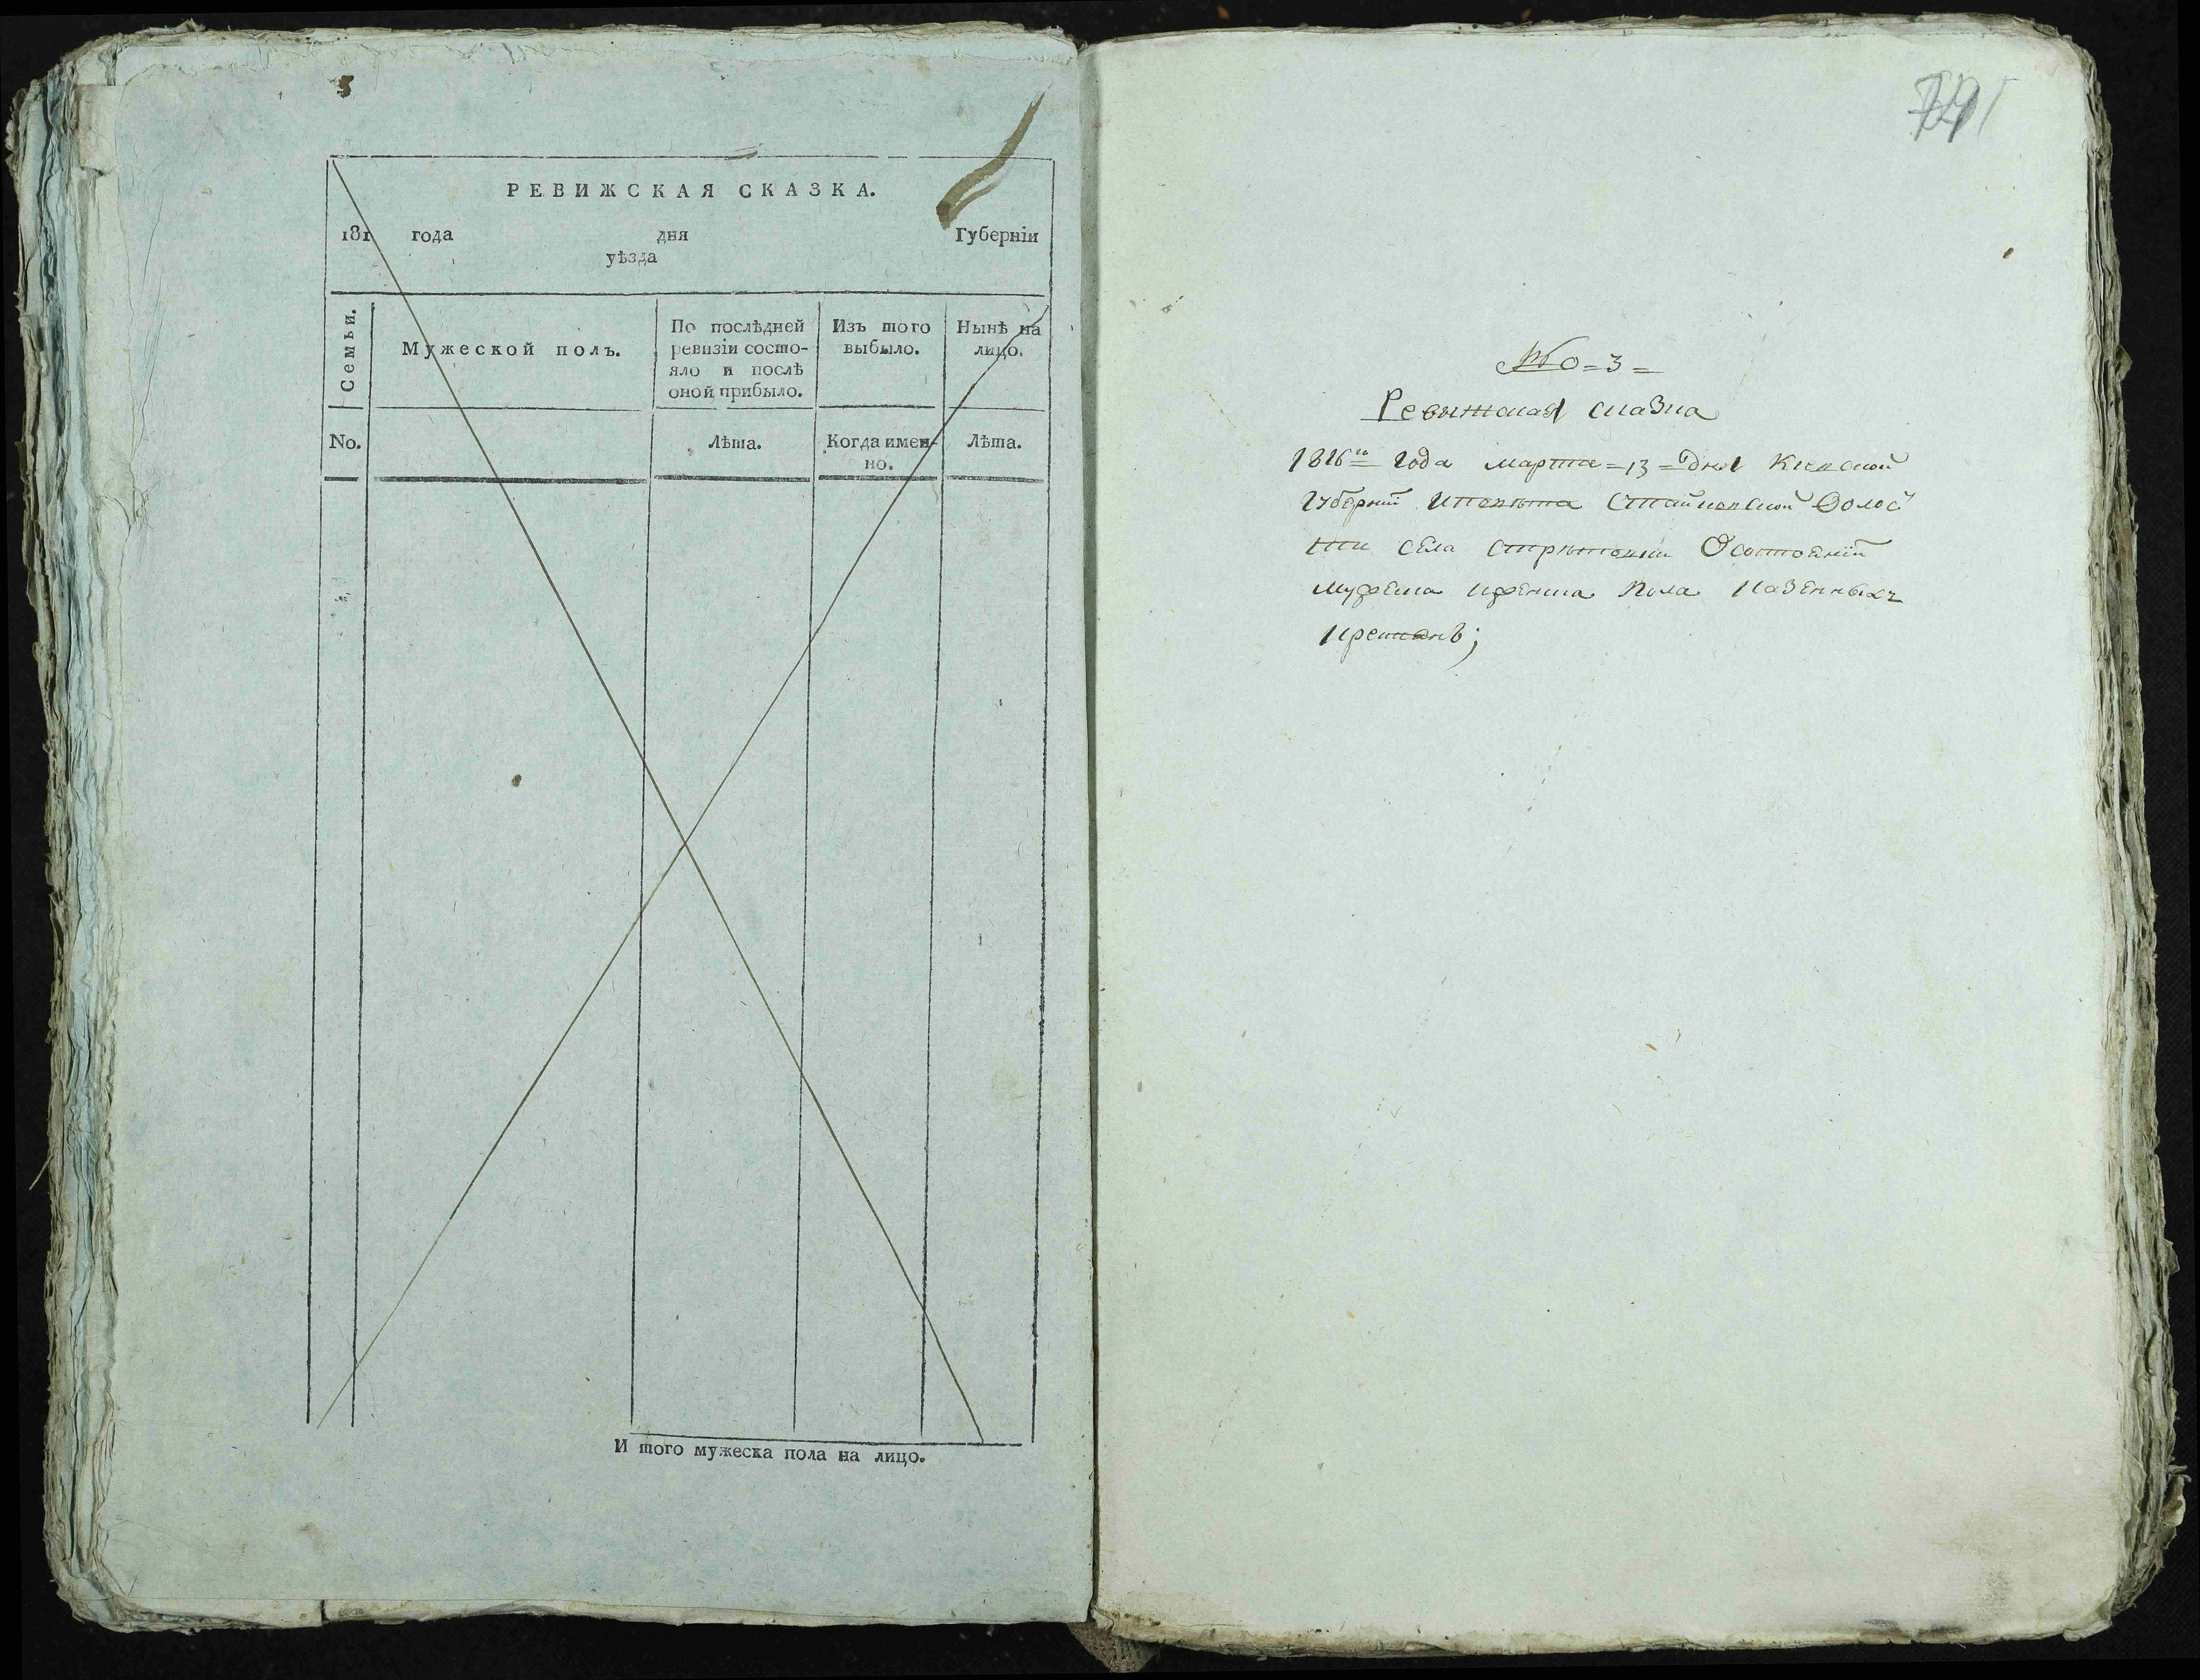 РЕВИЖСКАЯ СКАЗКА.
181 года дня Губерніи
уѣзда
Семьи.
Мужеской полъ.
По послѣдней
ревизіи состо-
яло и послѣ
оной прибыло.
Изъ того
выбыло.
Нынѣ на
лицо.
No.
Лѣта.
Когда имен-
но.
Лѣта.
И того мужеска пола на лицо.
No=3=
Ревижская сказка
1816го года марта=13=дня Киевской
Губернии Стайковской Волос
ти села Осостоянии
мужеска иженска пола казенныхъ
крестянъ;